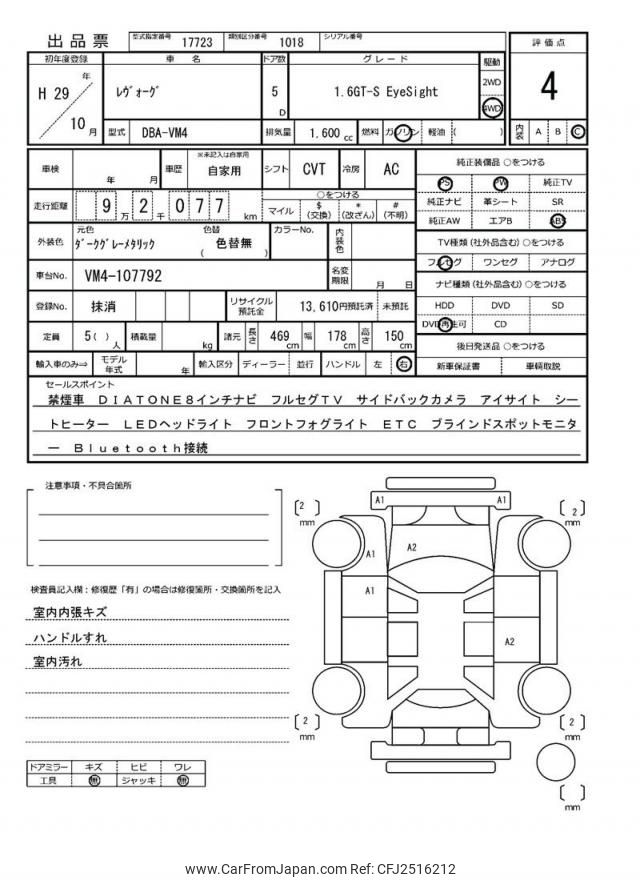 出品票 型式指定番号 17723 類別区分番号 1018 シリアル番号
初年度登録 車名 ドア数 グレード 駆動 評価点
H 29 年 10 月 ﾚｳﾞｫｰｸﾞ 5 D 1.6GT-S EyeSight 2WD 4WD 4
型式 DBA-VM4 排気量 1,600 cc 燃料 ガソリン 軽油 ( ) 内装 A B C
車検 年 月 車歴 ※未記入は自家用 自家用 シフト CVT 冷房 AC
走行距離 9 2 0 7 7 万 千 km
○をつける
マイル $(交換) *(改ざん) #(不明)
外装色 元色 ﾀﾞｰｸｸﾞﾚｰﾒﾀﾘｯｸ 色替 ( 色替無 ) カラーNo. 内装色
車台No. VM4-107792 名変期限 月 日
登録No. 抹消 リサイクル預託金 13,610円預託済 未預託
定員 5( ) 人 積載量 kg 諸元 長さ 469 cm 幅 178 cm 高さ 150 cm
輸入車のみ⇒ モデル年式 年 輸入区分 ディーラー 並行 ハンドル 左 右
純正装備品 ○をつける
PS PW 純正TV
純正ナビ 革シート SR
純正AW エアB ABS
TV種類 (社外品含む) ○をつける
フルセグ ワンセグ アナログ
ナビ種類 (社外品含む) ○をつける
HDD DVD SD
DVD再生可 CD
後日発送品 ○をつける
新車保証書 車輌取説
セールスポイント
禁煙車 DIATONE8インチナビ フルセグTV サイドバックカメラ アイサイト シー
トヒーター LEDヘッドライト フロントフォグライト ETC ブラインドスポットモニタ
ー Bluetooth接続
注意事項・不具合箇所
検査員記入欄：修復歴「有」の場合は修復箇所・交換箇所を記入
室内内張キズ
ハンドルすれ
室内汚れ
ドアミラー キズ ヒビ ワレ
工具 無 ジャッキ 無
[2] mm A1 A1 [2] mm
A1 A2
A1
A2
[2] mm [2] mm
[ ] mm
www.CarFromJapan.com Ref: CFJ2516212